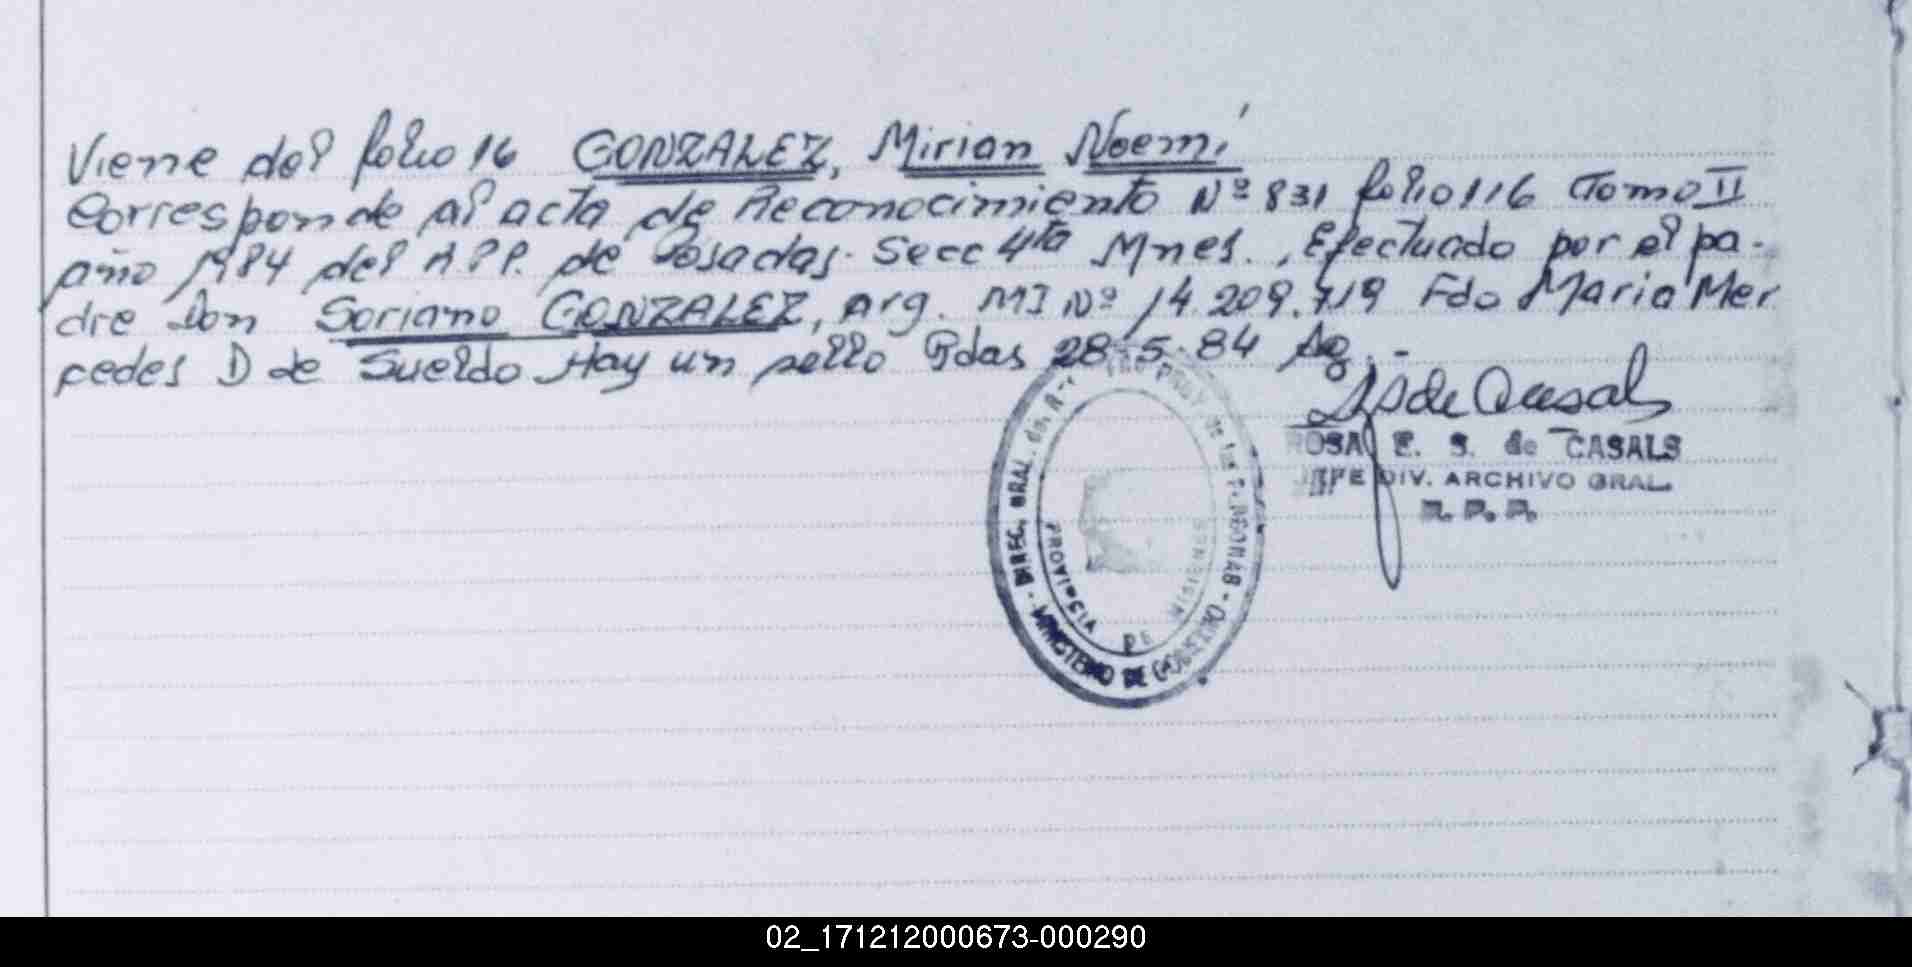 Viene del folio 16 GONZALEZ, Mirian Noemí
Corresponde al acta de Reconocimiento Nº 831 folio 116 Tomo II
año 1984 del R.P.P. de Posadas. Secc 4ta Mnes., Efectuado por el pa-
dre Don Soriano GONZALEZ, Arg. MI Nº 14.209.719 Fdo Maria Mer
cedes D de Sueldo Hay un sello Pdas 28-5-84
de Casals
ROSA E. S. de CASALS
JEFE DIV. ARCHIVO GRAL.
R. P. P.
DIREC. GRAL. del PROV. de las PERSONAS - MINISTERIO DE GOBIERNO
PROVINCIA DE MISIONES
02_171212000673-000290